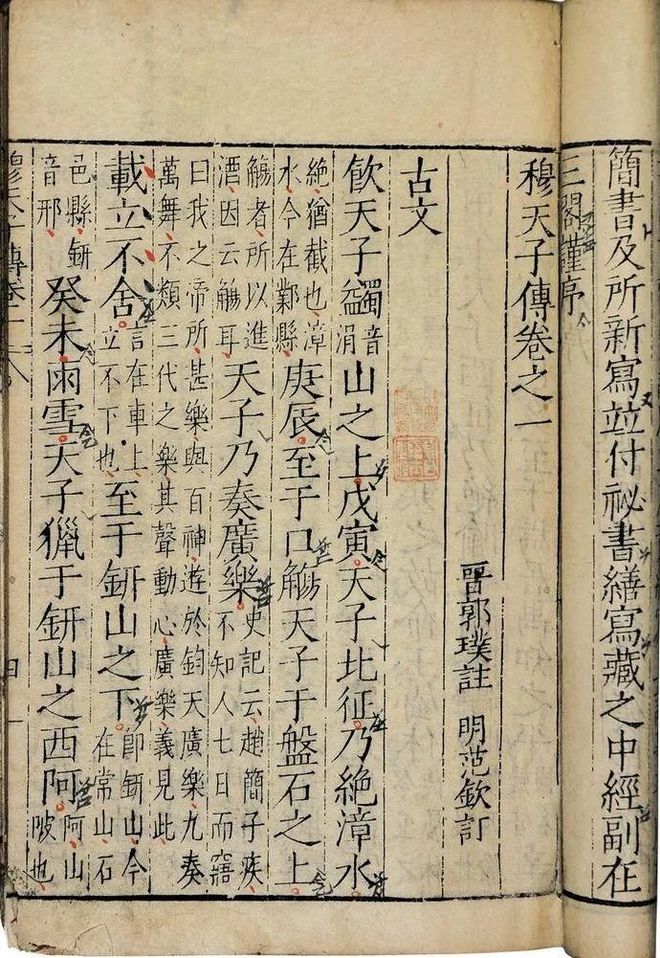 簡書及所新寫並付祕書繕寫藏之中經副在
三閣謹序
穆天子傳卷之一
晉郭璞註 明范欽訂
古文
飲天子蠲音涓山之上戊寅天子北征乃絕漳水
絕猶截也漳水今在鄴縣庚辰至于口觴天子于盤石之上
觴者所以進酒因云觴耳天子乃奏廣樂史記云趙簡子疾不知人七日而寤
曰我之帝所甚樂與百神遊於鈞天廣樂九奏萬舞不類三代之樂其聲動心廣樂義見此
載立不舍言在車上立不下也至于鈃山之下即鈃山今在常山石
邑縣鈃音邢癸未雨雪天子獵于鈃山之西阿阿山陂也